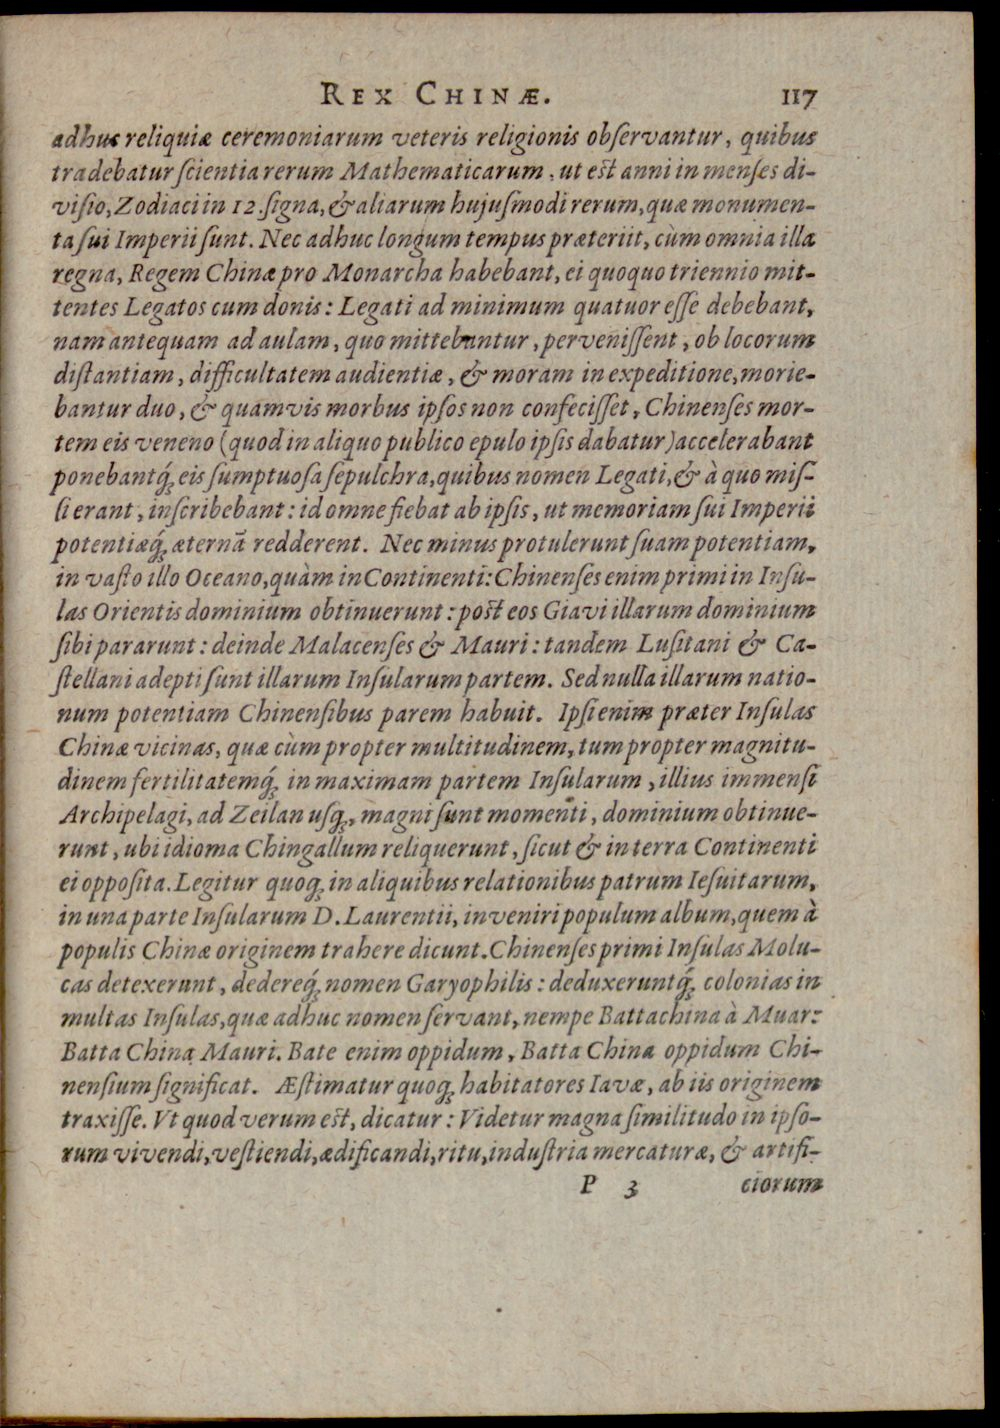 REX CHINÆ. 117
adhuc reliquiæ ceremoniarum veteris religionis obſervantur, quibus
tradebatur ſcientia rerum Mathematicarum, ut est anni in menſes di-
viſio, Zodiaci in 12. ſigna, & aliarum hujuſmodi rerum, quæ monumen-
ta ſui Imperii ſunt. Nec adhuc longum tempus præteriit, cùm omnia illa
regna, Regem Chinæ pro Monarcha habebant, ei quoquo triennio mit-
tentes Legatos cum donis: Legati ad minimum quatuor eſſe debebant,
nam antequam ad aulam, quo mittebantur, perveniſſent, ob locorum
diſtantiam, difficultatem audientiæ, & moram in expeditione, morie-
bantur duo, & quamvis morbus ipſos non confeciſſet, Chinenſes mor-
tem eis veneno (quod in aliquo publico epulo ipſis dabatur) accelerabant
ponebantq́; eis ſumptuoſa ſepulchra, quibus nomen Legati, & à quo miſ-
ſi erant, inſcribebant: id omne fiebat ab ipſis, ut memoriam ſui Imperii
potentiæq́; æternã redderent. Nec minus protulerunt ſuam potentiam,
in vaſto illo Oceano, quàm in Continenti: Chinenſes enim primi in Inſu-
las Orientis dominium obtinuerunt: post eos Giavi illarum dominium
ſibi pararunt: deinde Malacenſes & Mauri: tandem Luſitani & Ca-
ſtellani adepti ſunt illarum Inſularum partem. Sed nulla illarum natio-
num potentiam Chinenſibus parem habuit. Ipſi enim præter Inſulas
Chinæ vicinas, quæ cùm propter multitudinem, tum propter magnitu-
dinem fertilitatemq́; in maximam partem Inſularum, illius immenſi
Archipelagi, ad Zeilan uſq;, magni ſunt momenti, dominium obtinue-
runt, ubi idioma Chingallum reliquerunt, ſicut & in terra Continenti
ei oppoſita. Legitur quoq; in aliquibus relationibus patrum Ieſuitarum,
in una parte Inſularum D. Laurentii, inveniri populum album, quem à
populis Chinæ originem trahere dicunt. Chinenſes primi Inſulas Molu-
cas detexerunt, dedereq́; nomen Garyophilis: deduxeruntq́; colonias in
multas Inſulas, quæ adhuc nomen ſervant, nempe Battachina à Muar:
Batta China Mauri. Bate enim oppidum, Batta China oppidum Chi-
nenſium ſignificat. Æſtimatur quoq; habitatores Iavæ, ab iis originem
traxiſſe. Vt quod verum est, dicatur: Videtur magna ſimilitudo in ipſo-
rum vivendi, veſtiendi, ædificandi, ritu, induſtria mercaturæ, & artifi-
P 3 ciorum